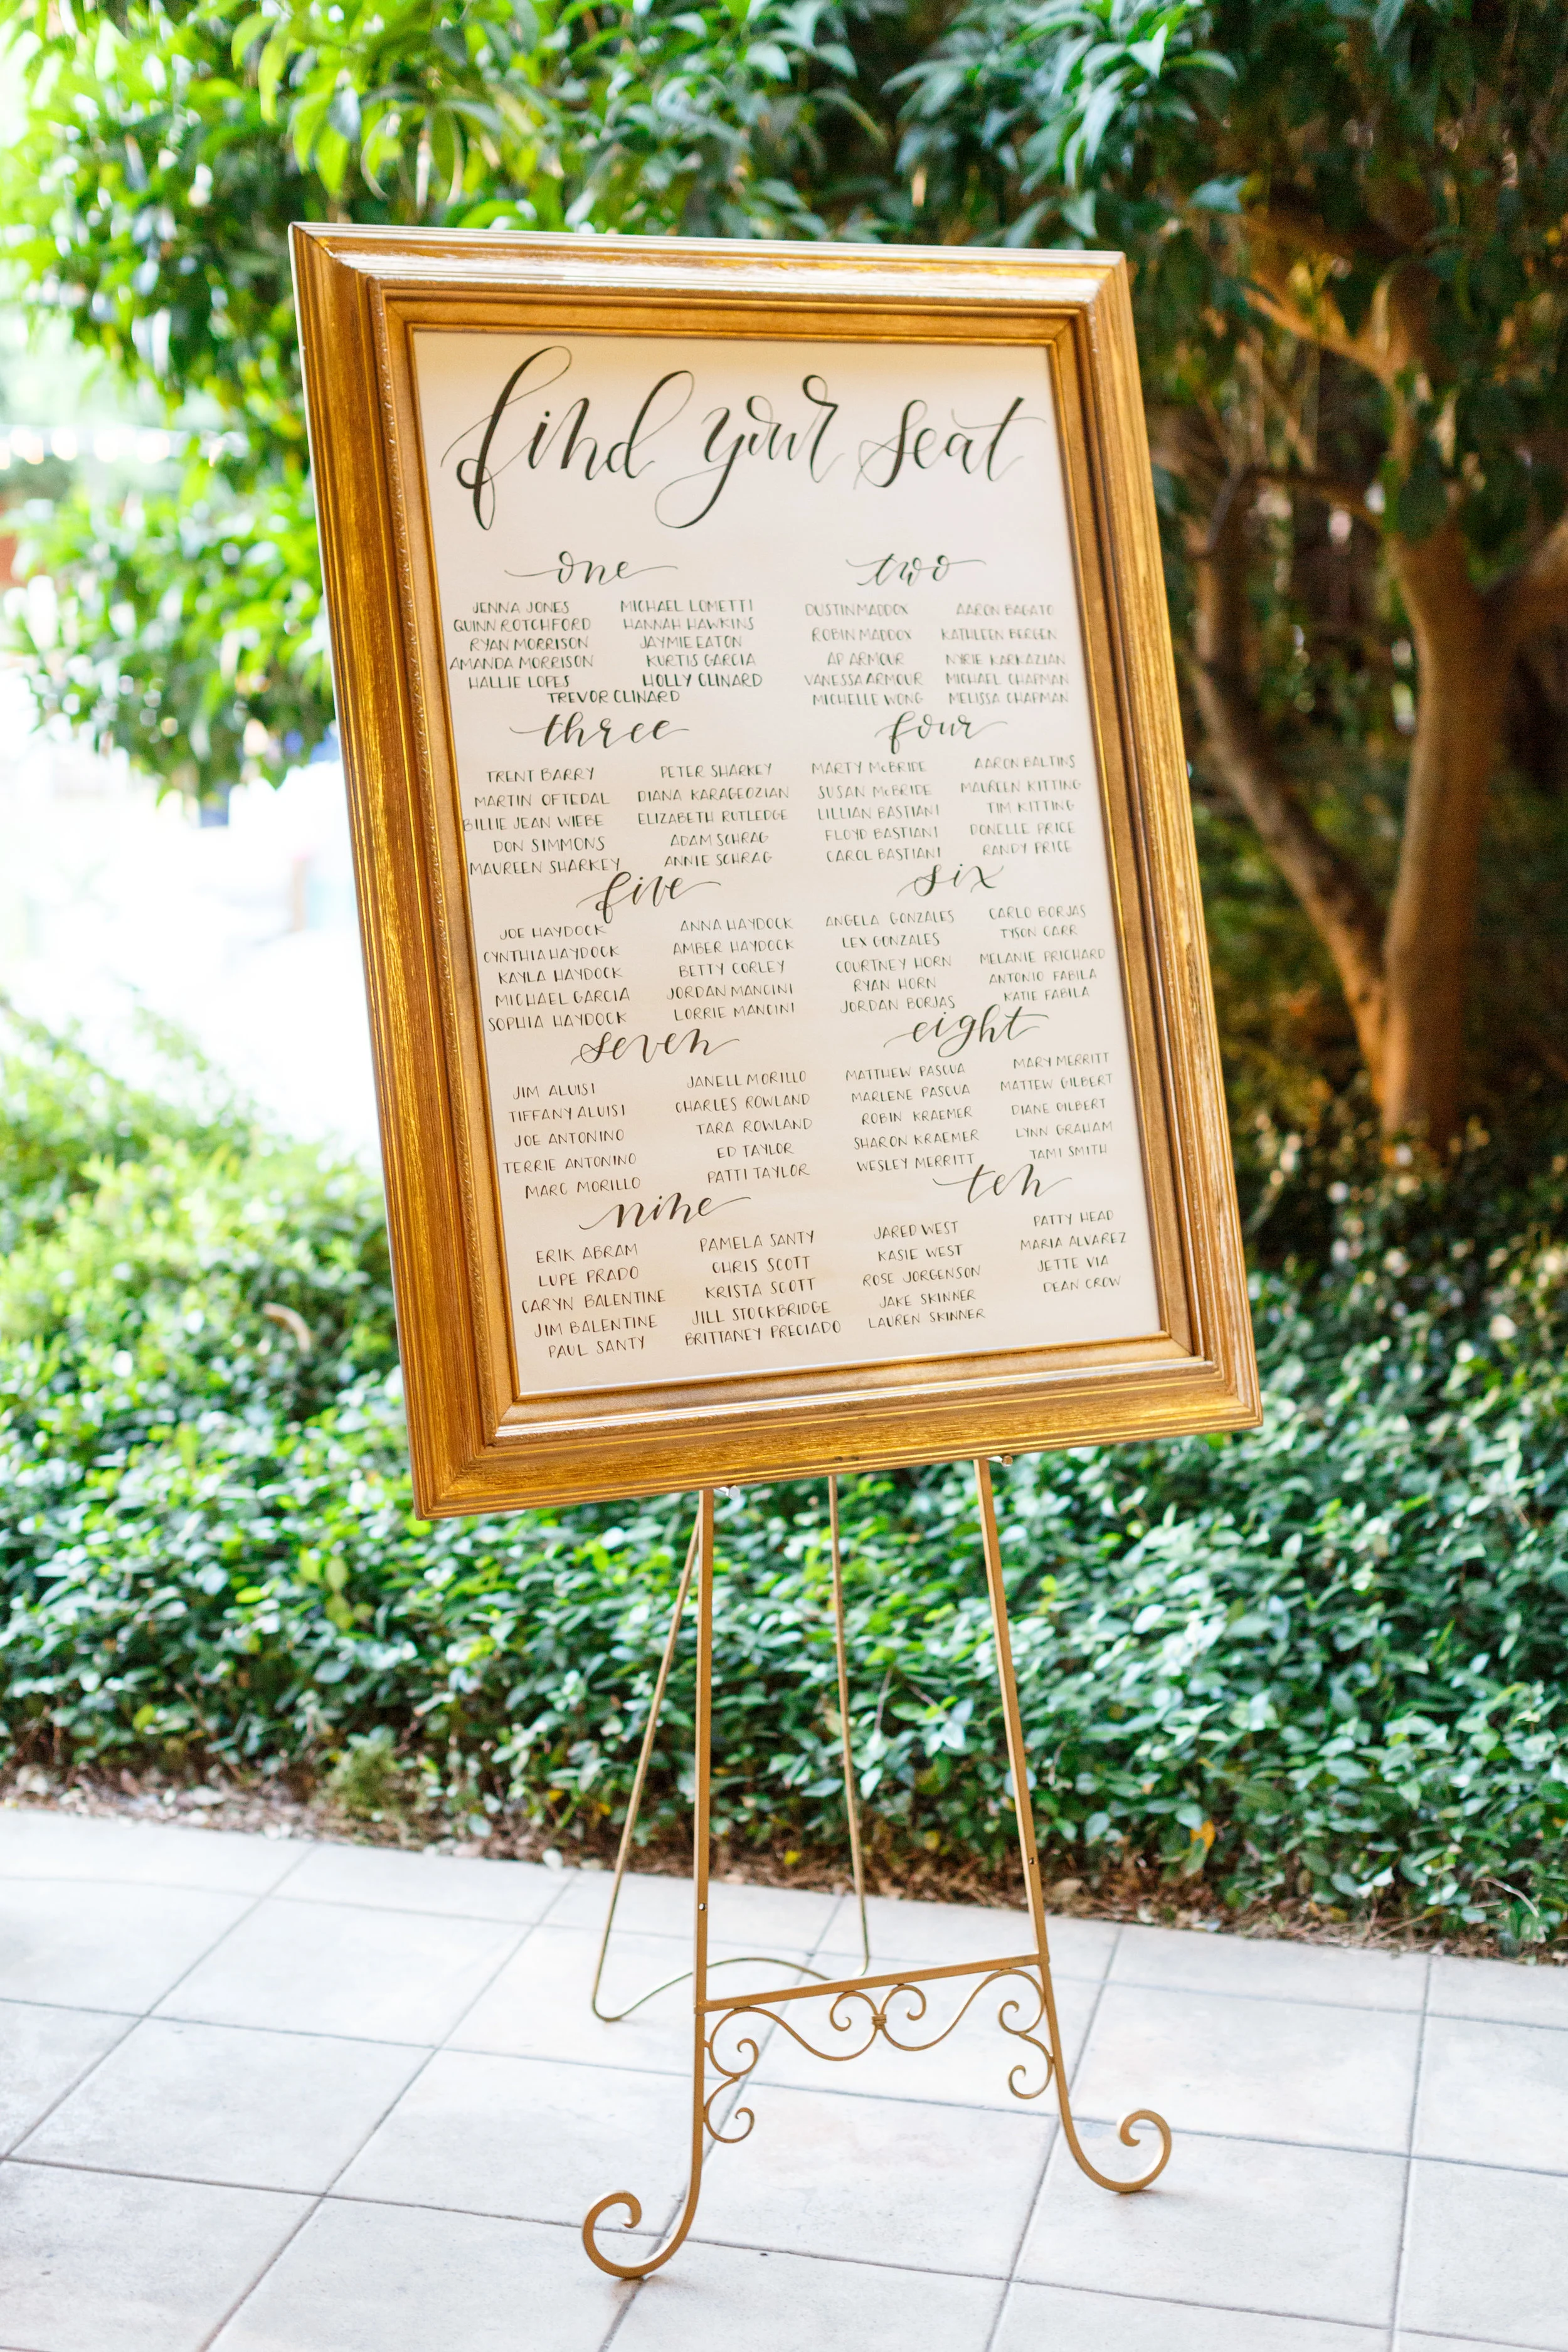 find your seat
one
JENNA JONES
QUINN ROTCHFORD
RYAN MORRISON
AMANDA MORRISON
HALLIE LOPES
MICHAEL LOMETTI
HANNAH HAWKINS
JAYMIE EATON
KURTIS GARCIA
HOLLY CLINARD
TREVOR CLINARD
two
DUSTIN MADDOX
ROBIN MADDOX
AP ARMOUR
VANESSA ARMOUR
MICHELLE WONG
AARON BAGATO
KATHLEEN BERGEN
NYRIE KARKAZIAN
MICHAEL CHAPMAN
MELISSA CHAPMAN
three
TRENT BARRY
MARTIN OFTEDAL
BILLIE JEAN WIEBE
DON SIMMONS
MAUREEN SHARKEY
PETER SHARKEY
DIANA KARAGEOZIAN
ELIZABETH RUTLEDGE
ADAM SCHRAG
ANNIE SCHRAG
four
MARTY McBRIDE
SUSAN McBRIDE
LILLIAN BASTIANI
FLOYD BASTIANI
CAROL BASTIANI
AARON BALTINS
MAUREEN KITTING
TIM KITTING
DONELLE PRICE
RANDY PRICE
five
JOE HAYDOCK
CYNTHIA HAYDOCK
KAYLA HAYDOCK
MICHAEL GARCIA
SOPHIA HAYDOCK
ANNA HAYDOCK
AMBER HAYDOCK
BETTY CORLEY
JORDAN MANCINI
LORRIE MANCINI
six
ANGELA GONZALES
LEX GONZALES
COURTNEY HORN
RYAN HORN
JORDAN BORJAS
CARLO BORJAS
TYSON CARR
MELANIE PRICHARD
ANTONIO FABILA
KATIE FABILA
seven
JIM ALUISI
TIFFANY ALUISI
JOE ANTONINO
TERRIE ANTONINO
MARC MORILLO
JANELL MORILLO
CHARLES ROWLAND
TARA ROWLAND
ED TAYLOR
PATTI TAYLOR
eight
MATTHEW PASCUA
MARLENE PASCUA
ROBIN KRAEMER
SHARON KRAEMER
WESLEY MERRITT
MARY MERRITT
MATTEW GILBERT
DIANE GILBERT
LYNN GRAHAM
TAMI SMITH
nine
ERIK ABRAM
LUPE PRADO
CARYN BALENTINE
JIM BALENTINE
PAUL SANTY
PAMELA SANTY
CHRIS SCOTT
KRISTA SCOTT
JILL STOCKBRIDGE
BRITTANEY PRECIADO
ten
JARED WEST
KASIE WEST
ROSE JORGENSON
JAKE SKINNER
LAUREN SKINNER
PATTY HEAD
MARIA ALVAREZ
JETTE VIA
DEAN CROW